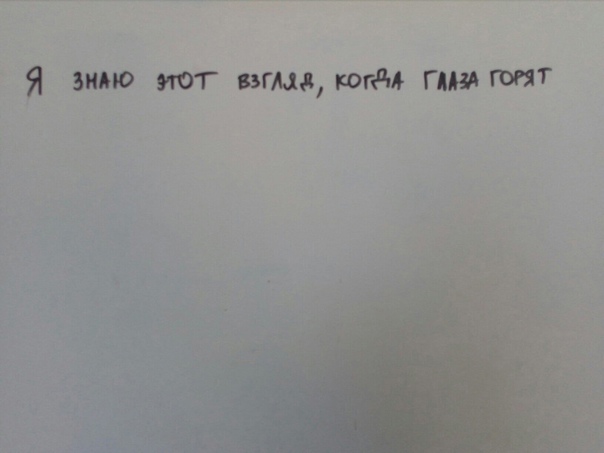 Я ЗНАЮ ЭТОТ ВЗГЛЯД, КОГДА ГЛАЗА ГОРЯТ